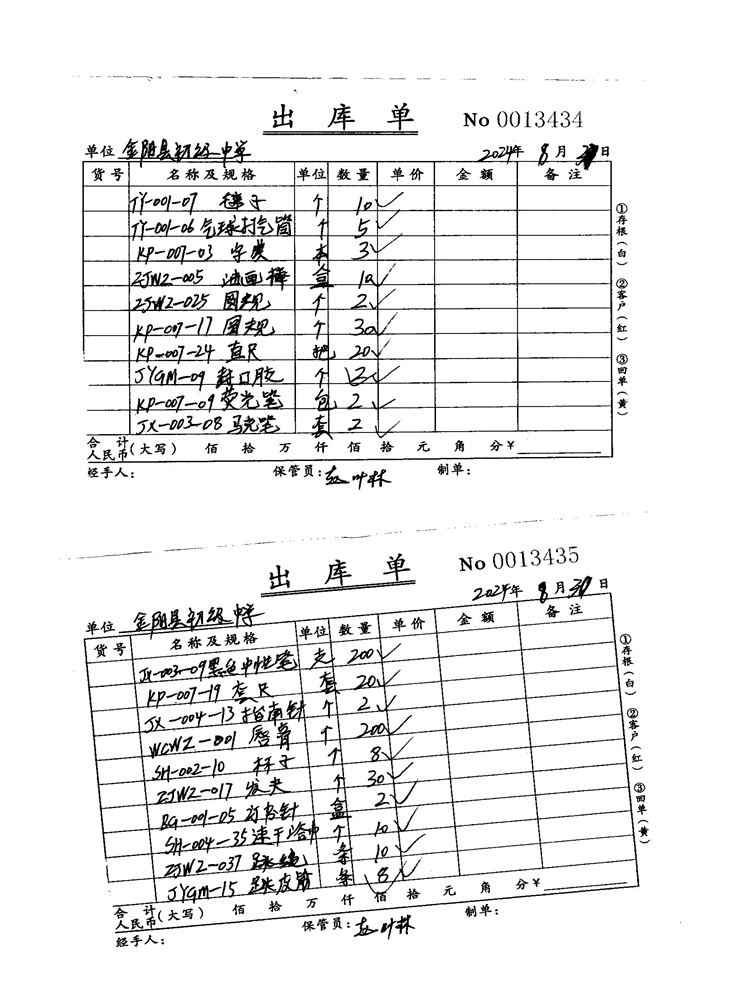 出 库 单 No 0013434
单位 金阳县初级中学 2024年 8月 日
货号 名称及规格 单位 数量 单价 金额 备注
TY-001-07 毽子 个 10
TY-001-06 气球打气筒 个 5
KP-007-03 字典 本 3
ZJWZ-005 油画棒 盒 10
ZJWZ-025 圆规 个 2
KP-007-17 圆规 个 30
KP-007-24 直尺 把 20
JYGM-09 封口胶 个
KP-007-09 荧光笔 包 2
JX-003-08 马克笔 套 2
合计人民币(大写) 佰 拾 万 仟 佰 拾 元 角 分 ¥
经手人: 保管员: 叶林 制单:
①存根(白) ②客户(红) ③回单(黄)
出 库 单 No 0013435
单位 金阳县初级中学 2024年 8月 30日
货号 名称及规格 单位 数量 单价 金额 备注
JX-003-09 黑色中性笔 支 200
KP-007-19 套尺 套 20
JX-004-13 指南针 个 2
WCWZ-001 唇膏 个 200
SH-002-10 杯子 个 8
ZJWZ-017 发夹 个 30
BG-001-05 订书针 盒 2
SH-004-35 速干浴巾 个 10
ZJWZ-037 跳绳 条 10
JYGM-15 跳皮筋 条 8
合计人民币(大写) 佰 拾 万 仟 佰 拾 元 角 分 ¥
经手人: 保管员: 叶林 制单:
①存根(白) ②客户(红) ③回单(黄)